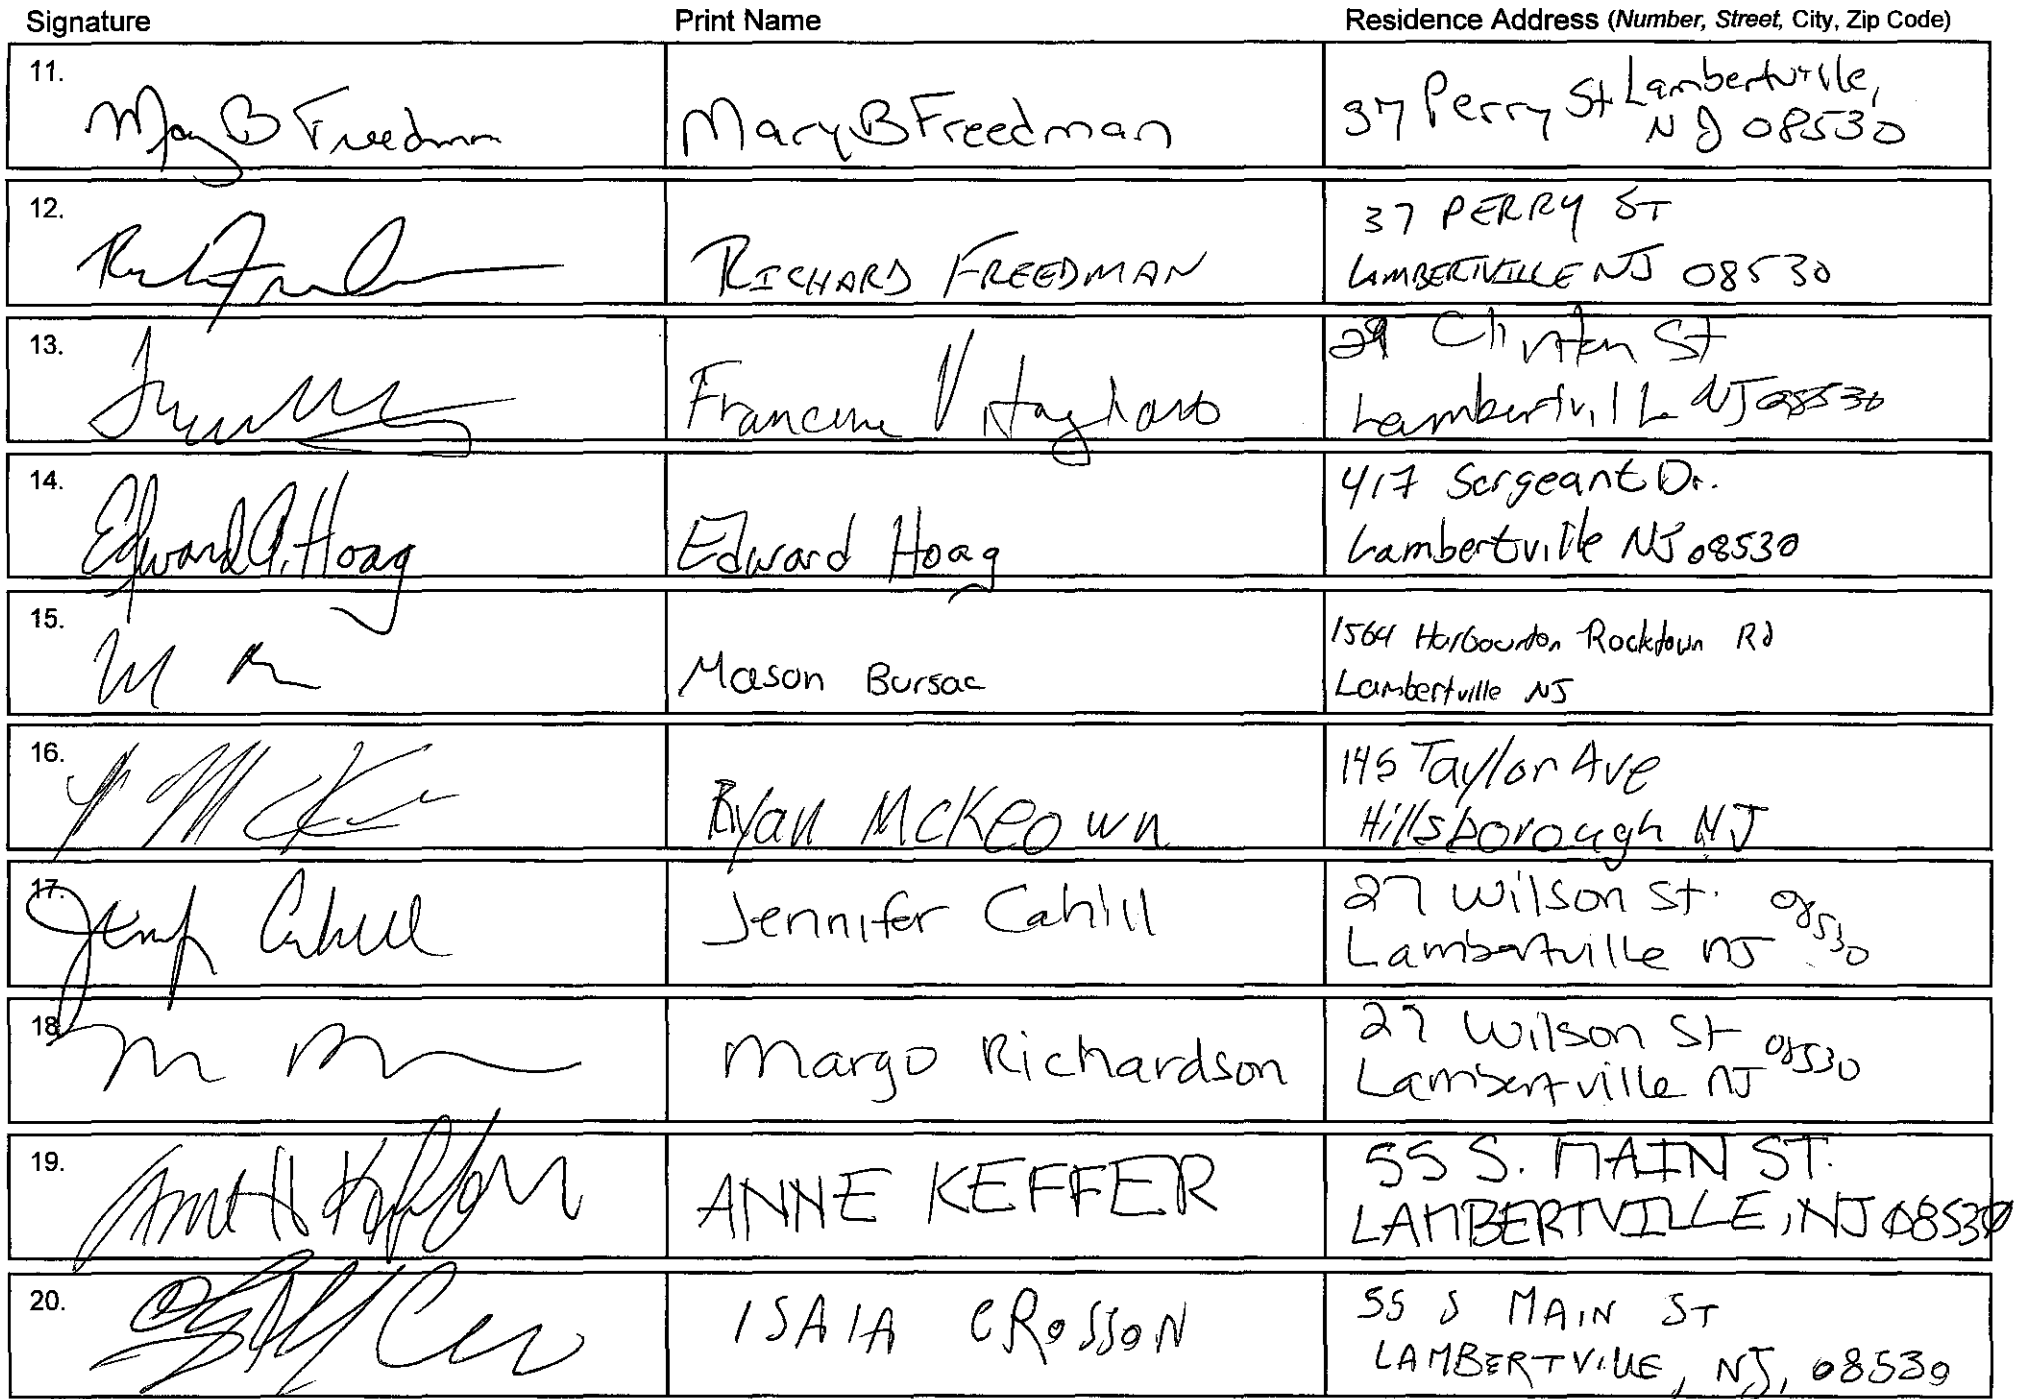 Signature Print Name Residence Address (Number, Street, City, Zip Code)
11. Mary B Freedman Mary B Freedman 37 Perry St Lambertville,
NJ 08530
12. RICHARD FREEDMAN 37 PERRY ST
LAMBERTVILLE NJ 08530
13. Francine Vitagliano 29 Clinton St
Lambertville NJ 08530
14. Edward A. Hoag Edward Hoag 417 Sergeant Dr.
Lambertville NJ 08530
15. Mason Bursac 1564 Harbourton Rocktown Rd
Lambertville NJ
16. Ryan McKeown 145 Taylor Ave
Hillsborough NJ
17. Jennifer Cahill 27 Wilson St. 08530
Lambertville NJ
18. Margo Richardson 27 Wilson St 08530
Lambertville NJ
19. ANNE KEFFER 55 S. MAIN ST.
LAMBERTVILLE, NJ 08530
20. ISAIA CROSSON 55 S MAIN ST
LAMBERTVILLE, NJ, 08530